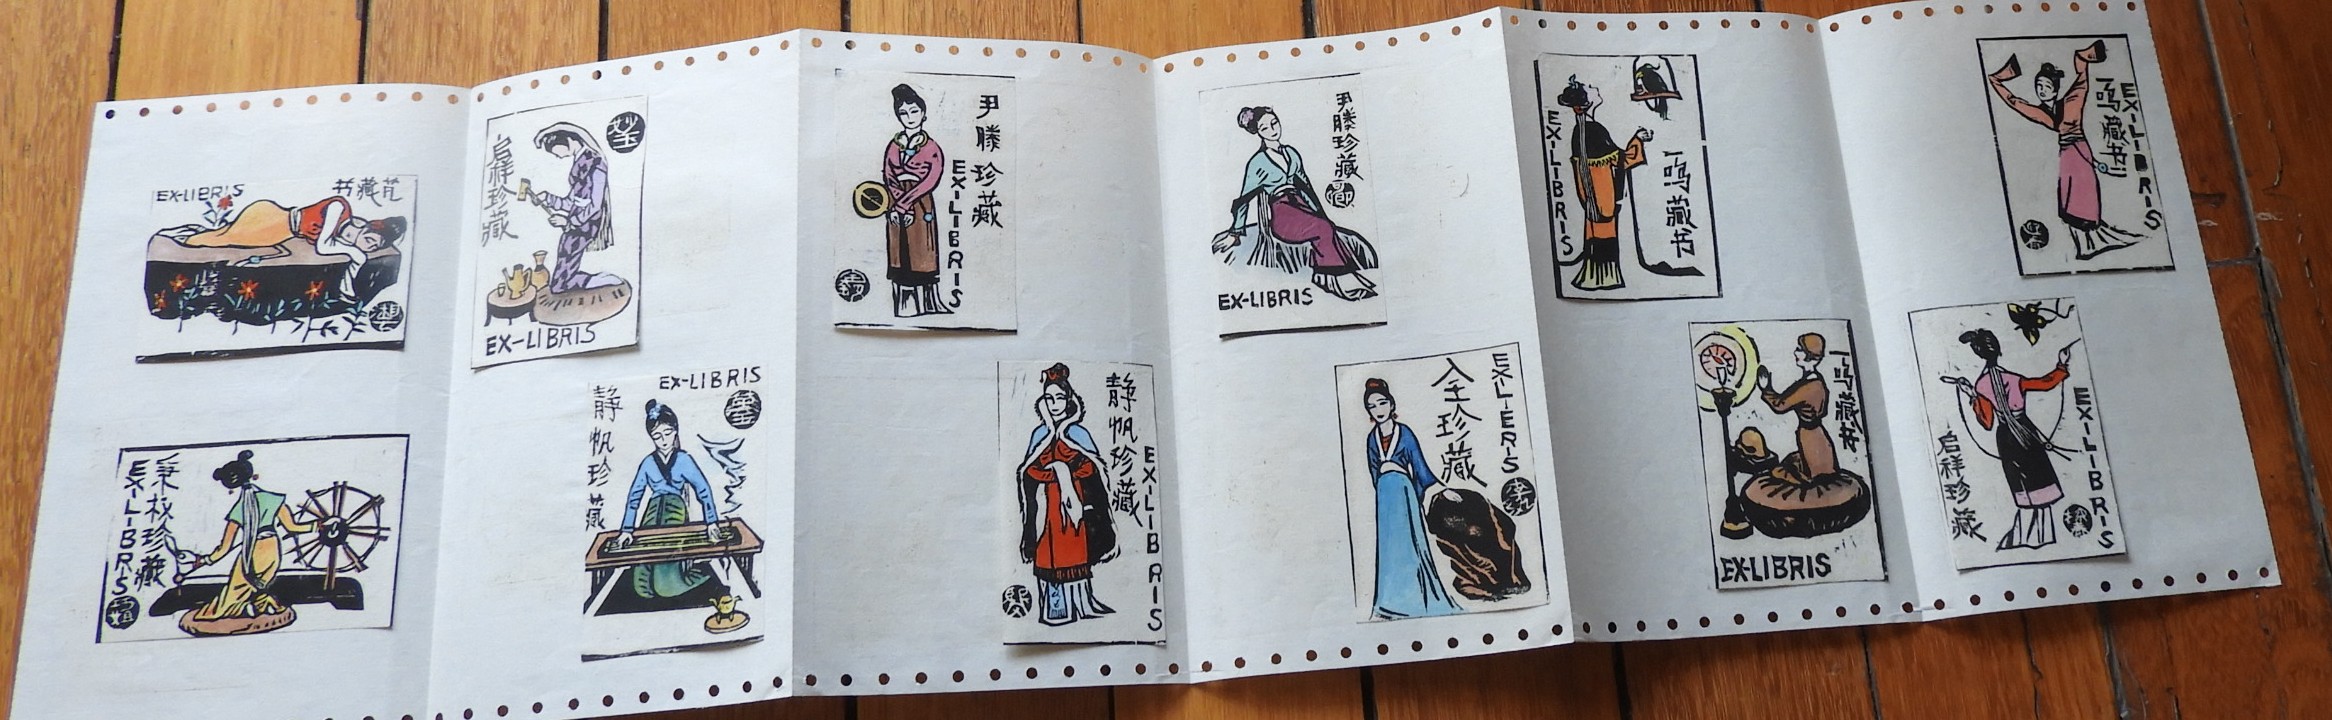 EX-LIBRIS
书藏芃
湘
EX-LIBRIS
秉权珍藏
启祥珍藏
妙玉
EX-LIBRIS
EX-LIBRIS
静帆珍藏
尹滕珍藏
EX-LIBRIS
静帆珍藏
EX-LIBRIS
熙
尹滕珍藏
EX-LIBRIS
全珍藏
EX-LIBRIS
EX-LIBRIS
一鸣藏书
一鸣藏书
EX-LIBRIS
一鸣藏书
EX-LIBRIS
启祥珍藏
EX-LIBRIS